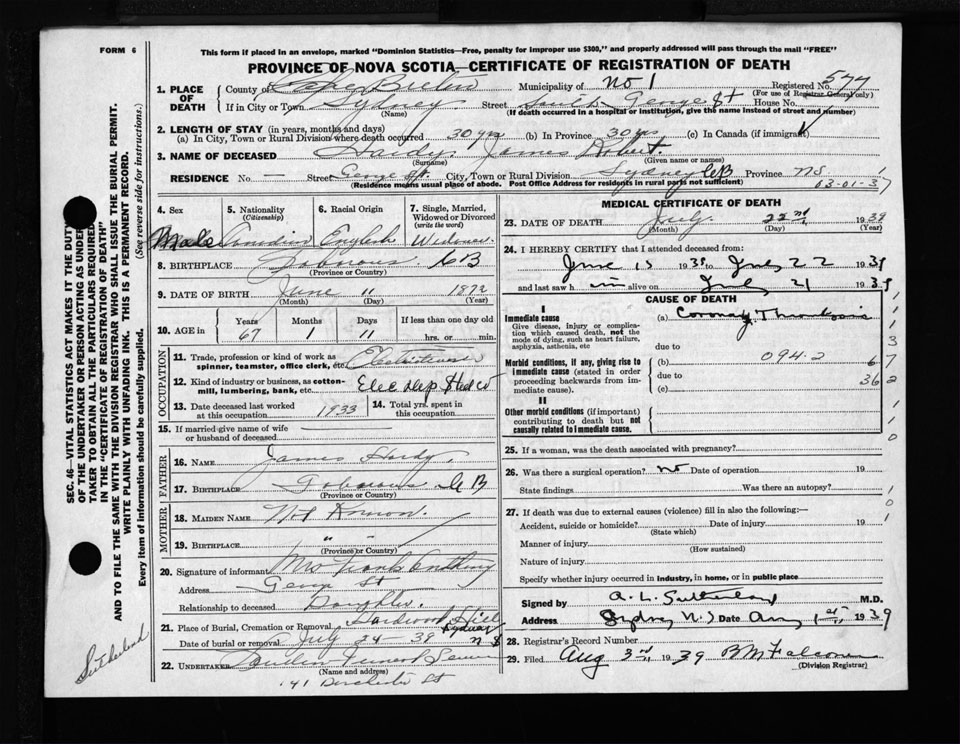 FORM 6
This form if placed in an envelope, marked "Dominion Statistics—Free, penalty for improper use $300," and properly addressed will pass through the mail "FREE"
PROVINCE OF NOVA SCOTIA—CERTIFICATE OF REGISTRATION OF DEATH
1. PLACE OF DEATH County of Cape Breton Municipality of No 1 Registered No. 577 (For use of Registrar General only)
If in City or Town Sydney (Name) Street South George St House No.
(If death occurred in a hospital or institution, give the name instead of street and number)
2. LENGTH OF STAY (in years, months and days)
(a) In City, Town or Rural Division where death occurred 30 yrs (b) In Province 30 yrs (c) In Canada (if immigrant)
3. NAME OF DECEASED Hardy, James Robert.
(Surname) (Given name or names)
RESIDENCE No. — Street George St. City, Town or Rural Division Sydney CB Province NS
(Residence means usual place of abode. Post Office Address for residents in rural parts not sufficient)
03-01-37
4. Sex 5. Nationality (Citizenship) 6. Racial Origin 7. Single, Married, Widowed or Divorced (write the word)
Male Canadian English Widower
8. BIRTHPLACE Gabarous CB
(Province or Country)
9. DATE OF BIRTH June 11 1872
(Month) (Day) (Year)
10. AGE in Years Months Days If less than one day old
67 1 11 hrs. or min.
OCCUPATION
11. Trade, profession or kind of work as spinner, teamster, office clerk, etc.
12. Kind of industry or business, as cotton-mill, lumbering, bank, etc. Elec Dep Steel Co
13. Date deceased last worked at this occupation 1933 14. Total yrs. spent in this occupation
15. If married give name of wife or husband of deceased
FATHER
16. NAME James Hardy.
17. BIRTHPLACE Gabarous CB
(Province or Country)
MOTHER
18. MAIDEN NAME Not Known
19. BIRTHPLACE " "
(Province or Country)
20. Signature of informant Mrs Frank Anthony
Address George St
Relationship to deceased Daughter.
21. Place of Burial, Cremation or Removal Hardwood Hill Sydney
Date of burial or removal July 24-39 N S
22. UNDERTAKER Funeral Service
(Name and address)
141 Dorchester St
MEDICAL CERTIFICATE OF DEATH
23. DATE OF DEATH July 22nd 1939
(Month) (Day) (Year)
24. I HEREBY CERTIFY that I attended deceased from:
June 15 1939 to July 22 1939
and last saw him alive on July 21 1939
CAUSE OF DEATH
I
Immediate cause (a) Coronary Thrombosis
Give disease, injury or complication which caused death, not the mode of dying, such as heart failure, asphyxia, asthenia, etc
due to
Morbid conditions, if any, giving rise to immediate cause (stated in order proceeding backwards from immediate cause).
(b) 094-2
due to
(c)
II
Other morbid conditions (if important) contributing to death but not causally related to immediate cause.
1
1
1
3
67
362
1
1
0
25. If a woman, was the death associated with pregnancy?
26. Was there a surgical operation? No Date of operation 19
State findings Was there an autopsy?
27. If death was due to external causes (violence) fill in also the following:—
Accident, suicide or homicide? Date of injury 19
(State which)
Manner of injury
(How sustained)
Nature of injury
Specify whether injury occurred in industry, in home, or in public place
1
0
1
Signed by A. L. Sutherland M.D.
Address Sydney N.S Date Aug 1st 1939
28. Registrar's Record Number
29. Filed Aug 3rd 1939 B M Falconer
(Division Registrar)
SEC. 46—VITAL STATISTICS ACT MAKES IT THE DUTY
OF THE UNDERTAKER OR PERSON ACTING AS UNDER-
TAKER TO OBTAIN ALL THE PARTICULARS REQUIRED
IN THE "CERTIFICATE OF REGISTRATION OF DEATH"
AND TO FILE THE SAME WITH THE DIVISION REGISTRAR WHO SHALL ISSUE THE BURIAL PERMIT.
WRITE PLAINLY WITH UNFADING INK. THIS IS A PERMANENT RECORD.
Every item of information should be carefully supplied. (See reverse side for instructions.)
Sutherland